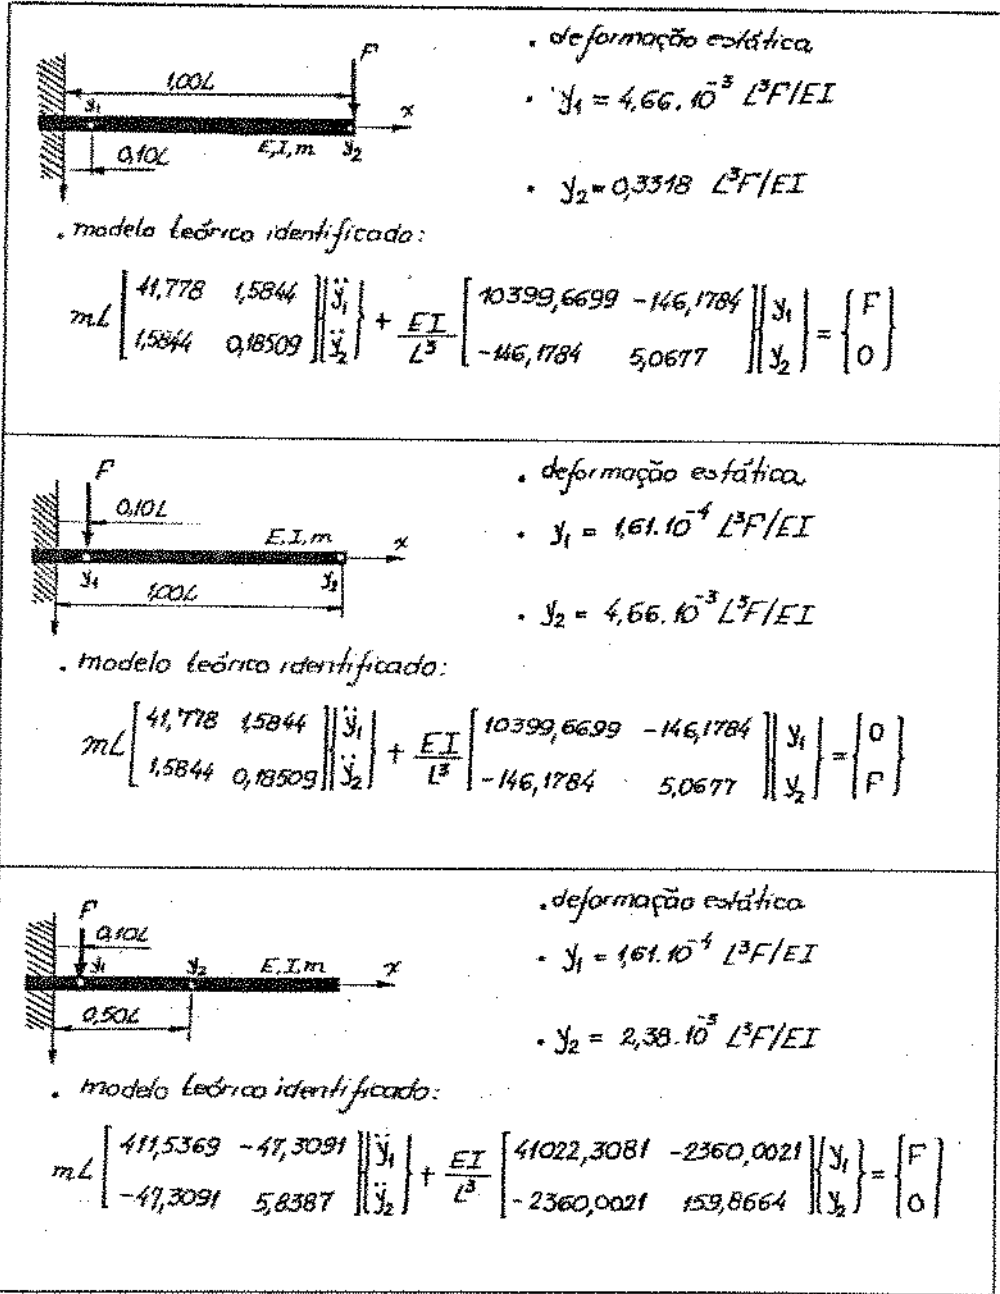 1,00L
F
y₁
x
E,I,m
y₂
0,10L
. deformação estática
. y₁ = 4,66.10⁻³ L³F/EI
. y₂ = 0,3318 L³F/EI
. modelo teórico identificado:
mL [41,778 1,5844; 1,5844 0,18509] {ÿ₁; ÿ₂} + EI/L³ [10399,6699 -146,1784; -146,1784 5,0677] {y₁; y₂} = {F; 0}
F
0,10L
E,I,m
x
y₁
y₂
1,00L
. deformação estática
. y₁ = 1,61.10⁻⁴ L³F/EI
. y₂ = 4,66.10⁻³ L³F/EI
. modelo teórico identificado:
mL [41,778 1,5844; 1,5844 0,18509] {ÿ₁; ÿ₂} + EI/L³ [10399,6699 -146,1784; -146,1784 5,0677] {y₁; y₂} = {0; F}
F
0,10L
y₁
y₂
E,I,m
x
0,50L
. deformação estática
. y₁ = 1,61.10⁻⁴ L³F/EI
. y₂ = 2,38.10⁻³ L³F/EI
. modelo teórico identificado:
mL [411,5369 -47,3091; -47,3091 5,8387] {ÿ₁; ÿ₂} + EI/L³ [41022,3081 -2360,0021; -2360,0021 159,8664] {y₁; y₂} = {F; 0}